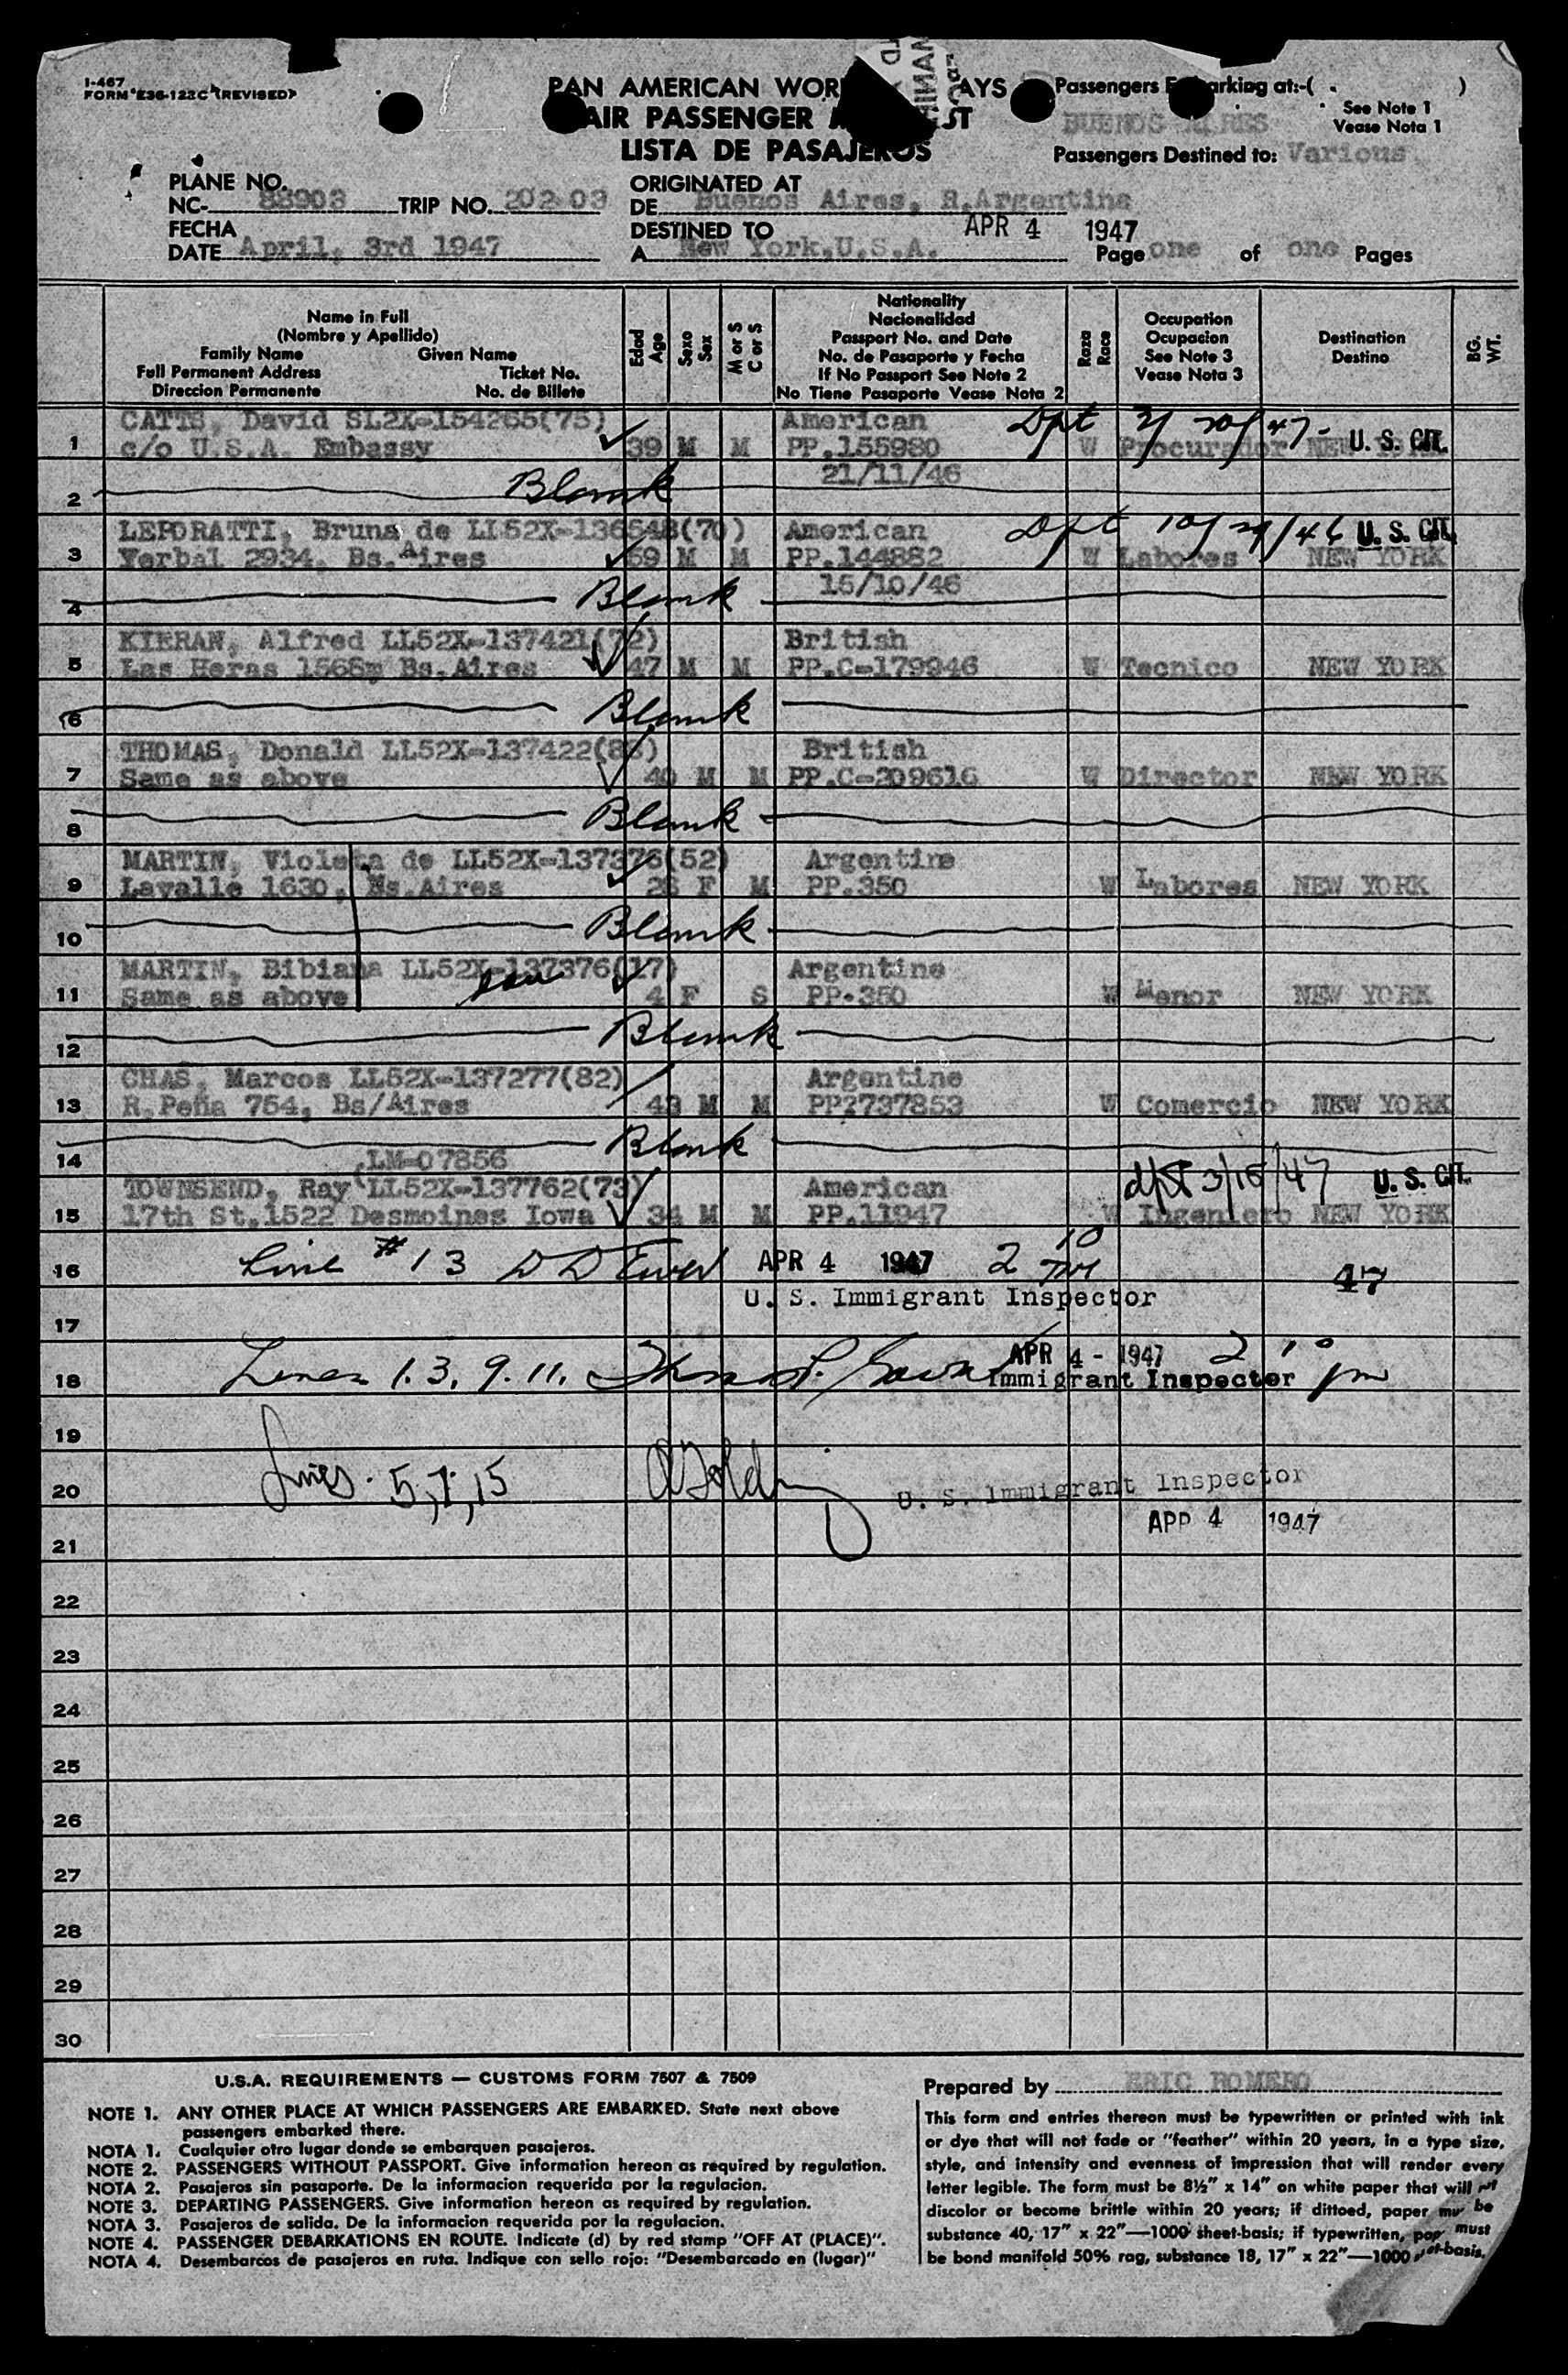 I-467
FORM E36-122C (REVISED)
PAN AMERICAN WOR AYS
AIR PASSENGER M ST
LISTA DE PASAJEROS
Passengers E arking at:-( )
BUENOS AIRES
See Note 1
Vease Nota 1
Passengers Destined to: Various
PLANE NO.
NC- 88903 TRIP NO. 202-03
FECHA
DATE April, 3rd 1947
ORIGINATED AT
DE Buenos Aires, R.Argentina
DESTINED TO APR 4 1947
A New York,U.S.A.
Page one of one Pages
Name in Full
(Nombre y Apellido)
Family Name Given Name
Full Permanent Address Ticket No.
Direccion Permanente No. de Billete
Edad
Age
Sexo
Sex
M or S
C or S
Nationality
Nacionalidad
Passport No. and Date
No. de Pasaporte y Fecha
If No Passport See Note 2
No Tiene Pasaporte Vease Nota 2
Raza
Race
Occupation
Ocupacion
See Note 3
Vease Nota 3
Destination
Destino
BG.
WT.
CATTS, David SL2X-154265(75) American Dpt 2/20/47-
1 c/o U.S.A. Embassy 39 M M PP.155980 W Procurador NEW YORK U. S. CIT.
21/11/46
2 Blank
LEPORATTI, Bruna de LL52X-136548(70) American Dpt 10/29/46 U. S. CIT.
3 Yerbal 2934, Bs.Aires 59 M M PP.144882 W Labores NEW YORK
15/10/46
4 Blank
KIERAN, Alfred LL52X-137421(72) British
5 Las Heras 1568, Bs.Aires 47 M M PP.C-179946 W Tecnico NEW YORK
6 Blank
THOMAS, Donald LL52X-137422(88) British
7 Same as above 40 M M PP.C-209616 W Director NEW YORK
8 Blank
MARTIN, Violeta de LL52X-137376(52) Argentine
9 Lavalle 1630, Bs.Aires 28 F M PP.350 W Labores NEW YORK
10 Blank
MARTIN, Bibiana LL52X-137376(17) Argentine
11 Same as above 4 F S PP.350 W Menor NEW YORK
12 Blank
CHAS, Marcos LL52X-137277(82) Argentine
13 R.Peña 754, Bs/Aires 43 M M PP2737853 W Comercio NEW YORK
14 Blank
LM-07856
TOWNSEND, Ray LL52X-137762(73) American dpt 3/18/47 U. S. CIT.
15 17th St.1522 Desmoines Iowa 34 M M PP.11947 W Ingeniero NEW YORK
16 Line #13 APR 4 1947 2 10 PM 47
U. S. Immigrant Inspector
17
18 Lines 1. 3. 9. 11. APR 4 - 1947 2 10 pm
Immigrant Inspector
19
20 Lines. 5, 7, 15 U. S. Immigrant Inspector
APR 4 1947
21
22
23
24
25
26
27
28
29
30
U.S.A. REQUIREMENTS — CUSTOMS FORM 7507 & 7509
NOTE 1. ANY OTHER PLACE AT WHICH PASSENGERS ARE EMBARKED. State next above
passengers embarked there.
NOTA 1. Cualquier otro lugar donde se embarquen pasajeros.
NOTE 2. PASSENGERS WITHOUT PASSPORT. Give information hereon as required by regulation.
NOTA 2. Pasajeros sin pasaporte. De la informacion requerida por la regulacion.
NOTE 3. DEPARTING PASSENGERS. Give information hereon as required by regulation.
NOTA 3. Pasajeros de salida. De la informacion requerida por la regulacion.
NOTE 4. PASSENGER DEBARKATIONS EN ROUTE. Indicate (d) by red stamp "OFF AT (PLACE)".
NOTA 4. Desembarcos de pasajeros en ruta. Indique con sello rojo: "Desembarcado en (lugar)"
Prepared by ERIC ROMERO
This form and entries thereon must be typewritten or printed with ink
or dye that will not fade or "feather" within 20 years, in a type size,
style, and intensity and evenness of impression that will render every
letter legible. The form must be 8½" x 14" on white paper that will not
discolor or become brittle within 20 years; if dittoed, paper must be
substance 40, 17" x 22"—1000 sheet-basis; if typewritten, paper must
be bond manifold 50% rag, substance 18, 17" x 22"—1000 sheet-basis.